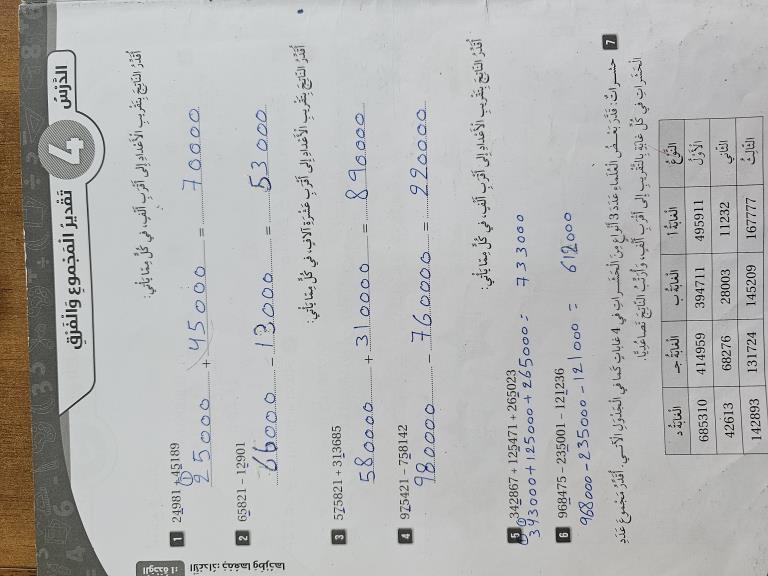 الوحدة 1:
الأعداد: جمعها وطرحها
الدَّرْسُ 4
تَقْديرُ الْمَجْموعِ وَالْفَرْقِ
أُقَدِّرُ النّاتِجَ بِتَقْريبِ الْأَعْدادِ إِلى أَقْرَبِ أَلْفٍ، في كُلٍّ مِمّا يَأْتي:
1 24981 + 45189
25000 + 45000 = 70000
2 65821 - 12901
66000 - 13000 = 53000
أُقَدِّرُ النّاتِجَ بِتَقْريبِ الْأَعْدادِ إِلى أَقْرَبِ عَشَرَةِ آلافٍ، في كُلٍّ مِمّا يَأْتي:
3 575821 + 313685
580000 + 310000 = 890000
4 975421 - 758142
980000 - 760000 = 220000
أُقَدِّرُ النّاتِجَ بِتَقْريبِ الْأَعْدادِ إِلى أَقْرَبِ أَلْفٍ، في كُلٍّ مِمّا يَأْتي:
5 342867 + 125471 + 265023
343000 + 125000 + 265000 = 733000
6 968475 - 235001 - 121236
968000 - 235000 - 121000 = 612000
7 حشرات: قَدَّرَ بَعْضُ الْعُلَماءِ عَدَدَ 3 أَنْواعٍ مِنَ الْحَشَراتِ في 4 غاباتٍ كَما في الْجَدْوَلِ الْآتي. أُقَدِّرُ مَجْموعَ عَدَدِ
الْحَشَراتِ في كُلِّ غابَةٍ بِالتَّقْريبِ إِلى أَقْرَبِ أَلْفٍ، وَأُرَتِّبُ النّاتِجَ تَصاعُدِيًّا.
النَّوْعُ الْغابَةُ أ الْغابَةُ ب الْغابَةُ جـ الْغابَةُ د
الْأَوَّلُ 495911 394711 414959 685310
الثّاني 11232 28003 68276 42613
الثّالِثُ 167777 145209 131724 142893